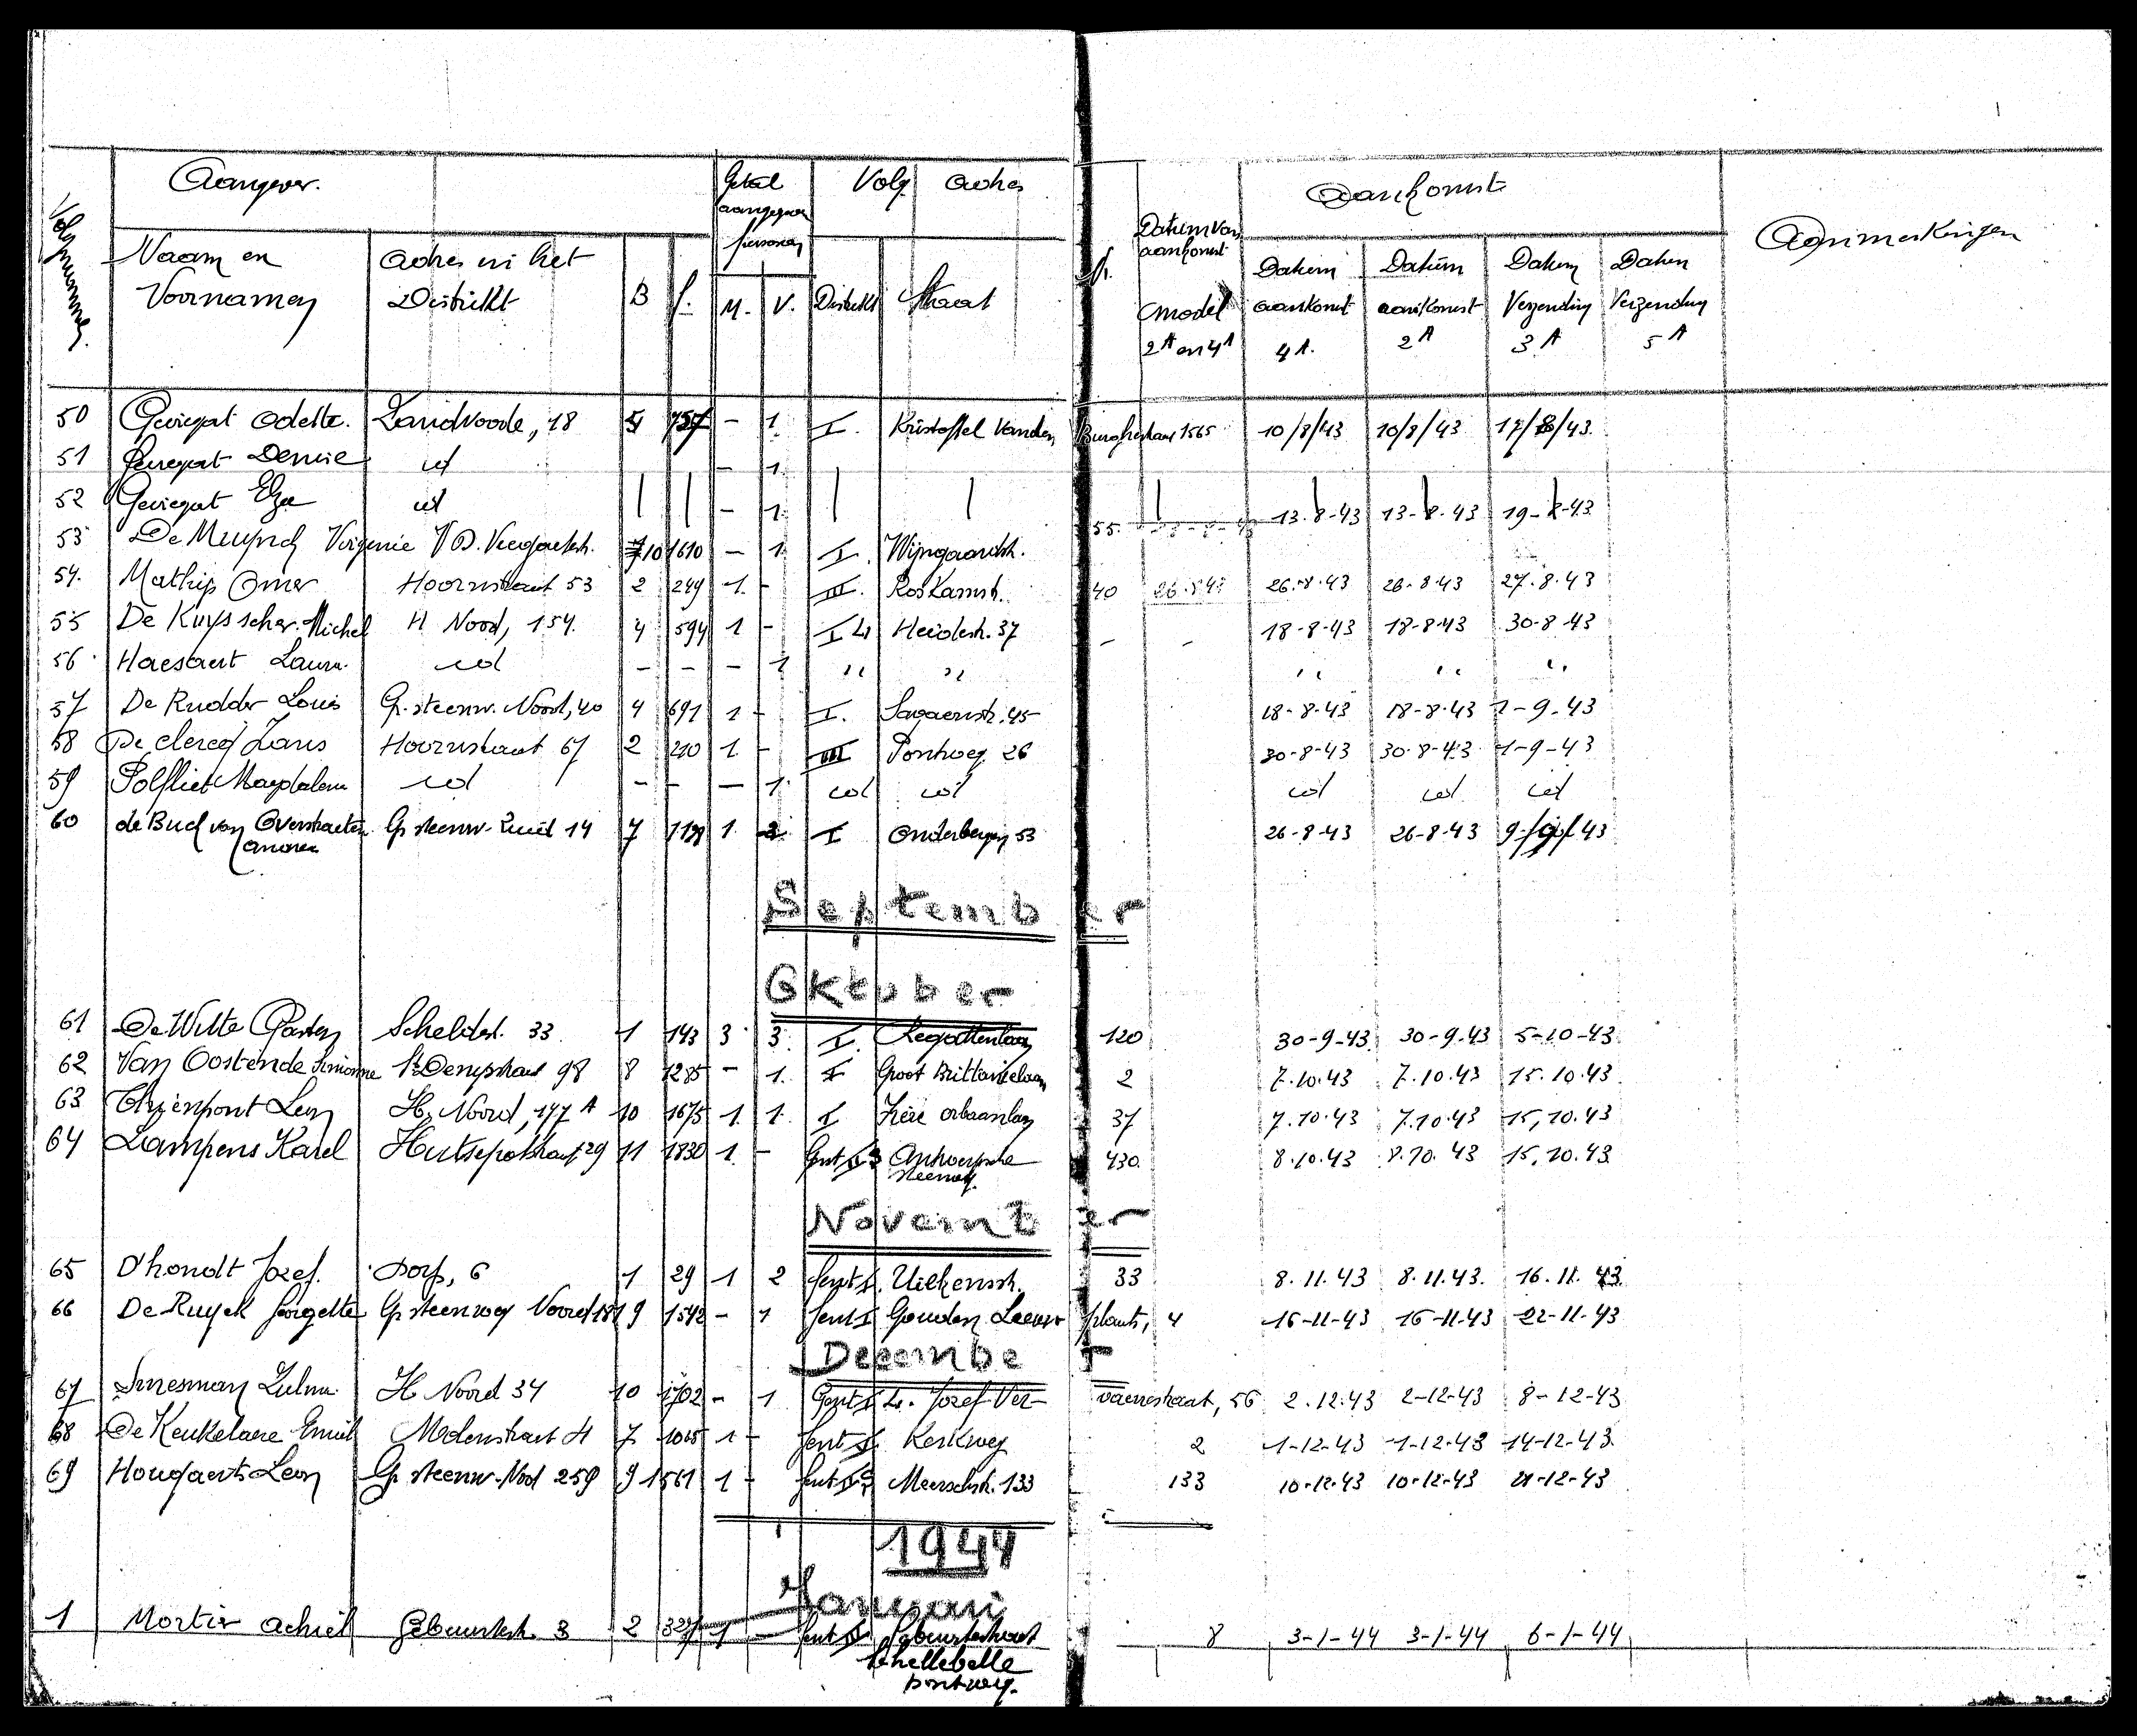 Volgnummer. Aangever. Getal aangegeven personen Volg adres Aankomst Aanmerkingen
Naam en Voornamen Adres in het Distrikt B f. M. V. Distrikt Straat Nr. Datum van aankomst model 2A en 4A Datum aankomst 4A. Datum aankomst 2A Datum Verzending 3A Datum Verzending 5A
50 Gevegat Odette. Zandvoorde, 18 5 757 - 1. I. Kristoffel Vanden Burghestraat 1565 10/8/43 10/8/43 17/8/43.
51 Gevegat Denise id - 1.
52 Gevegat Elza id - 1. 13.8-43 13-8-43 19-8-43
53 De Muynck Virginie V.D. 10 1610 - 1 I. Wijngaardstr. 55.
54. Mathijs Omer Hoornstraat 53 2 249 1. - III. Roskamstr. 40 26.8.43 26.8.43 26.8.43 27.8.43
55 De Kuysscher Michel H Noord, 154. 4 594 1 - I Heidestr. 37 - - 18-8-43 18-8-43 30-8-43
56 Haesaert Laura. id - - - 1 " " " " "
57 De Rudder Louis Gr. steenw. Noord, 40 4 691 1 - I. 45 18-8-43 18-8-43 1-9-43
58 De Clercq Frans Hoornstraat 67 2 210 1. - III Pontweg 26 30-8-43 30-8-43 1-9-43
59 Polfliet Magdalena id - - - 1. id id id id id
60 de Buck van Overstraeten Gr steenw. Zuid 14 7 1 I Onderbergen 53 26-8-43 26-8-43 9/9/43
September
Oktober
61 De Witte Gaston Scheldestr. 33 1 143 3 3. I. Regattenlaan 120 30-9-43 30-9-43 5-10-43
62 Van Oostende Simonne St Denysstraat 98 8 1285 - 1. I Groot Brittanielaan 2 7.10.43 7.10.43 15.10.43
63 Thienpont Leon H. Noord, 177 A 10 1675 1. 1. I 37 7.10.43 7.10.43 15.10.43
64 Lampens Karel Hutsepotstraat 29 11 1830 1. - Gent Antwerpsche steenweg. 430. 8.10.43 8.10.43 15.10.43
November
65 D'hondt Jozef. Dorp, 6 1 29 1 2 Gent I. 33 8.11.43 8.11.43. 16.11.43
66 De Ruyck Georgette Gr steenweg Noord 181 9 1542 - 1 Gent I Gouden Leeuw plaats, 4 16-11-43 16-11-43 22-11-43
December
67 Smesman Zulma. H Noord 34 10 1702 - 1 Gent Jozef Ver- vaenestraat, 56 2.12.43 2-12-43 8-12-43
68 De Keukelaere Emiel Molenstraat 7 1015 1 - Gent Kerkweg 2 1-12-43 1-12-43 14-12-43.
69 Hougaerts Leon Gr steenw. Nord 259 9 1561 1 - Gent Meerschstr. 133 133 10-12-43 10-12-43 21-12-43
1944
Januari
1 Mortier Achiel Gebuurtestr. 3 2 1 - Gent Gebuurtestraat 8 3-1-44 3-1-44 6-1-44
Schellebelle
Pontweg.